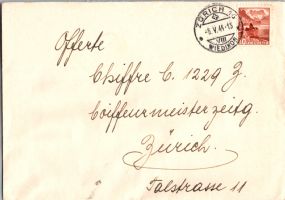 ZÜRICH
-9.V.41-15
VIII
WIEDIKON
Offerte
Chiffre C. 1229 Z.
Coiffeurmeisterzeitg.
Zürich.
Talstrasse 11